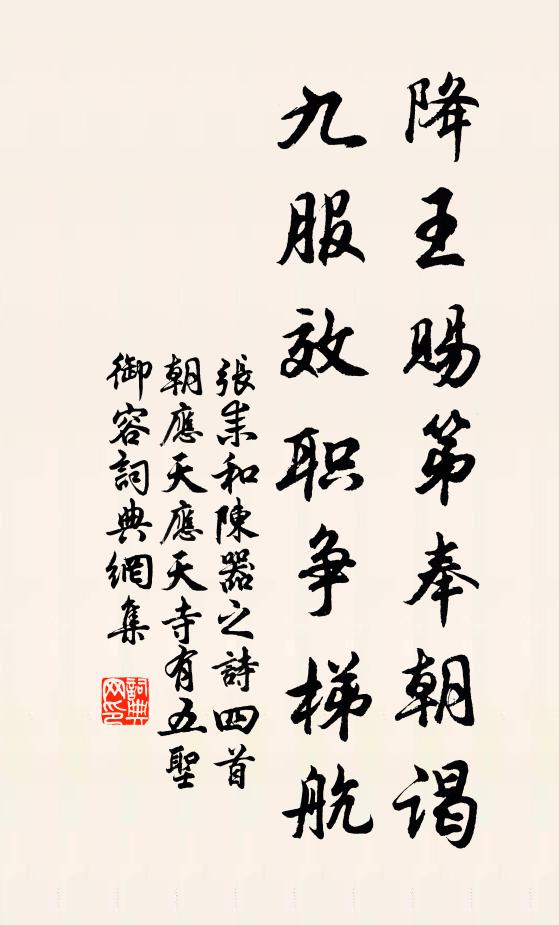 降王赐第奉朝谒
九服效职争梯航
張耒和陳器之詩四首
朝應天應天寺有五聖
御容詞典網集
詞典网印